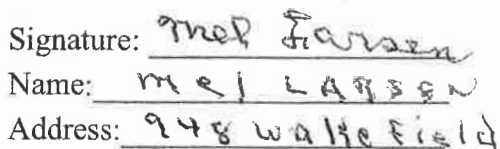 Signature: Mel Larsen
Name: Mel LARSEN
Address: 948 Wakefield